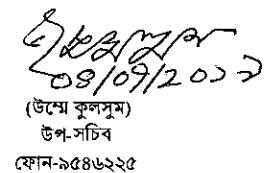 ০৪/০৭/২০১১
(উম্মে কুলসুম)
উপ-সচিব
ফোন-৯৫৪৬২২৫